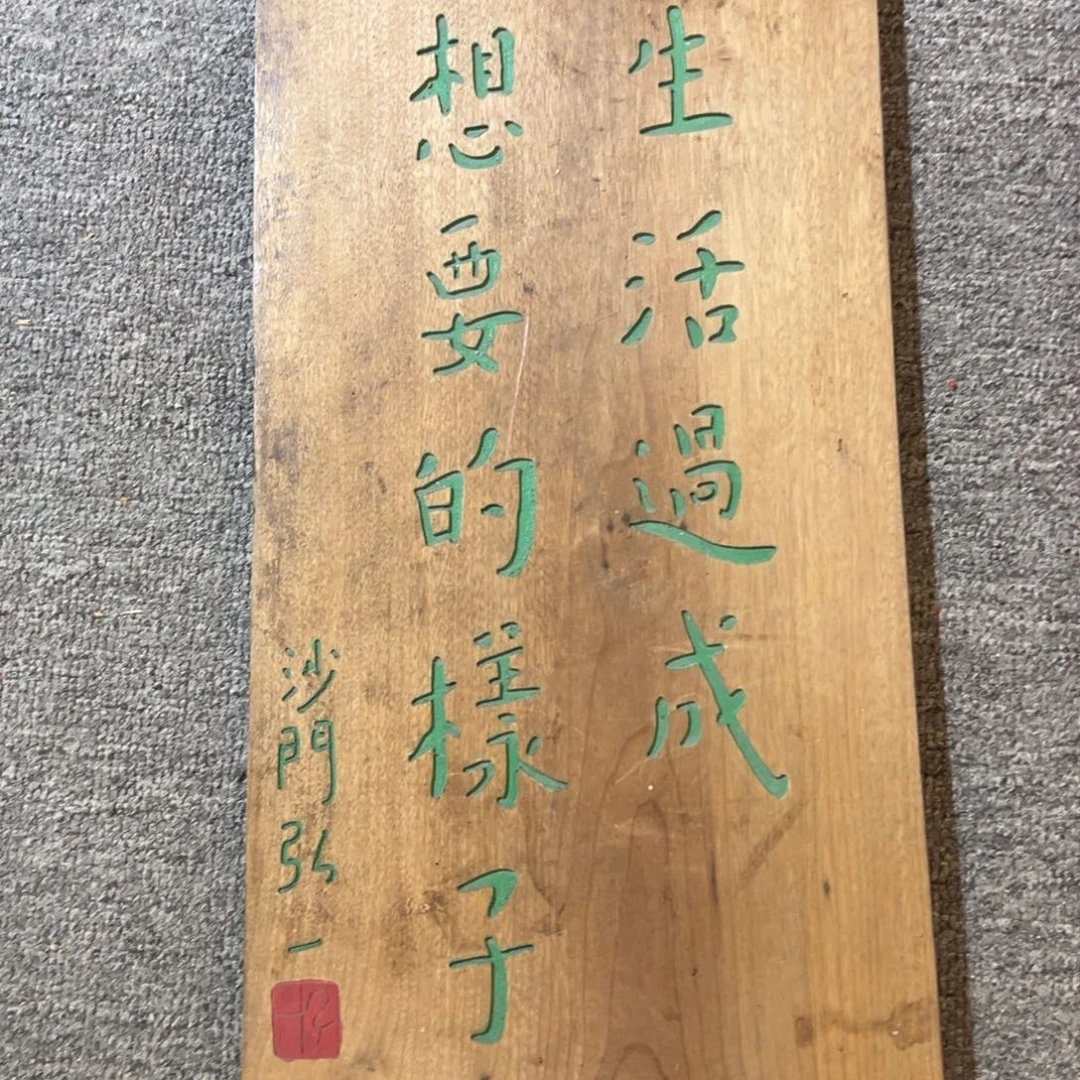 生活過成
想要的樣子
沙門弘一